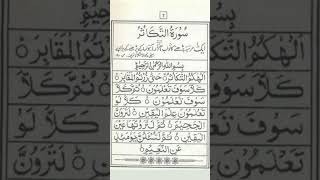 ٢
سُوْرَةُ التَّكَاثُرْ
بِسْمِ اللّٰهِ الرَّحْمٰنِ الرَّحِيْمِ
اَلْهٰكُمُ التَّكَاثُرُ ۙ حَتّٰى زُرْتُمُ الْمَقَابِرَ ؕ
كَلَّا سَوْفَ تَعْلَمُوْنَ ۙ ثُمَّ كَلَّا
سَوْفَ تَعْلَمُوْنَ ؕ كَلَّا لَوْ
تَعْلَمُوْنَ عِلْمَ الْيَقِيْنِ ؕ لَتَرَوُنَّ
الْجَحِيْمَ ۙ ثُمَّ لَتَرَوُنَّهَا عَيْنَ
الْيَقِيْنِ ۙ ثُمَّ لَتُسْئَلُنَّ يَوْمَئِذٍ
عَنِ النَّعِيْمِ